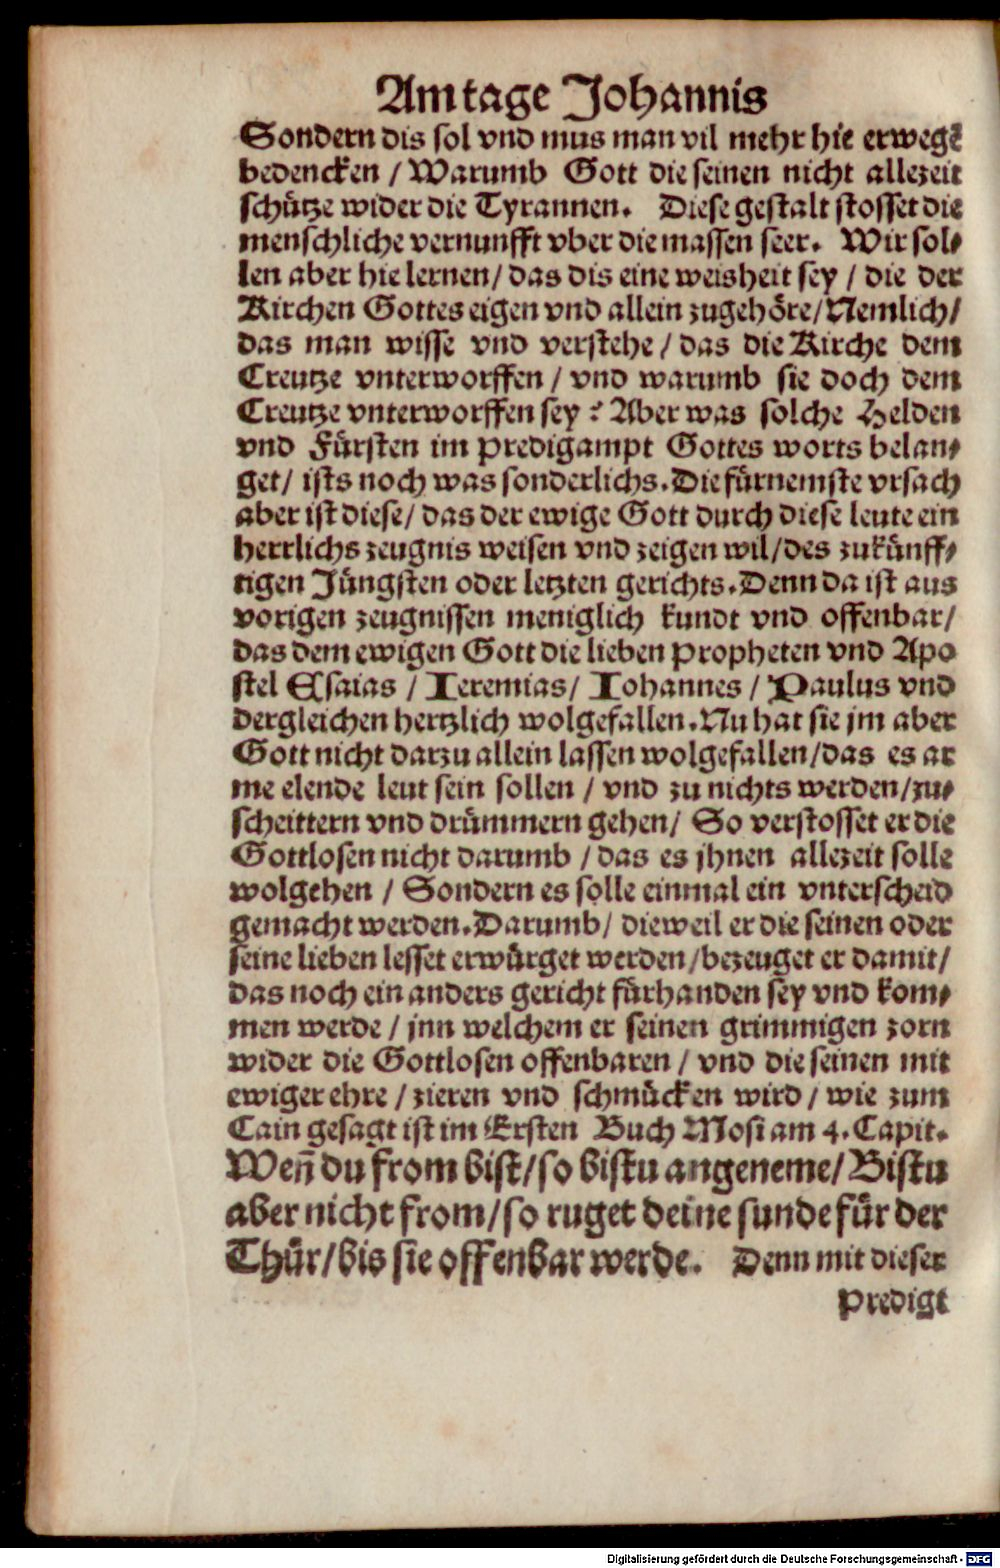 Am tage Johannis
Sondern dis sol vnd mus man vil mehr hie erwegē
bedencken / Warumb Gott die seinen nicht allezeit
schütze wider die Tyrannen. Diese gestalt stosset die
menschliche vernunfft vber die massen seer. Wir sol⸗
len aber hie lernen / das dis eine weisheit sey / die der
Kirchen Gottes eigen vnd allein zugehöre / Nemlich /
das man wisse vnd verstehe / das die Kirche dem
Creutze vnterworffen / vnd warumb sie doch dem
Creutze vnterworffen sey ? Aber was solche Helden
vnd Fürsten im predigampt Gottes worts belan⸗
get / ists noch was sonderlichs. Die fürnemste vrsach
aber ist diese / das der ewige Gott durch diese leute ein
herrlichs zeugnis weisen vnd zeigen wil / des zukünff⸗
tigen Jüngsten oder letzten gerichts. Denn da ist aus
vorigen zeugnissen meniglich kundt vnd offenbar /
das dem ewigen Gott die lieben Propheten vnd Apo
stel Esaias / Jeremias / Johannes / Paulus vnd
dergleichen hertzlich wolgefallen. Nu hat sie jm aber
Gott nicht darzu allein lassen wolgefallen / das es ar
me elende leut sein sollen / vnd zu nichts werden / zu⸗
scheittern vnd drümmern gehen / So verstosset er die
Gottlosen nicht darumb / das es jhnen allezeit solle
wolgehen / Sondern es solle einmal ein vnterscheid
gemacht werden. Darumb / dieweil er die seinen oder
seine lieben lesset erwürget werden / bezeuget er damit /
das noch ein anders gericht fürhanden sey vnd kom⸗
men werde / jnn welchem er seinen grimmigen zorn
wider die Gottlosen offenbaren / vnd die seinen mit
ewiger ehre / zieren vnd schmücken wird / wie zum
Cain gesagt ist im Ersten Buch Mosi am 4. Capit.
Weñ du from bist / so bistu angeneme / Bistu
aber nicht from / so ruget deine sunde für der
Thür / bis sie offenbar werde. Denn mit dieser
Predigt
Digitalisierung gefördert durch die Deutsche Forschungsgemeinschaft - DFG